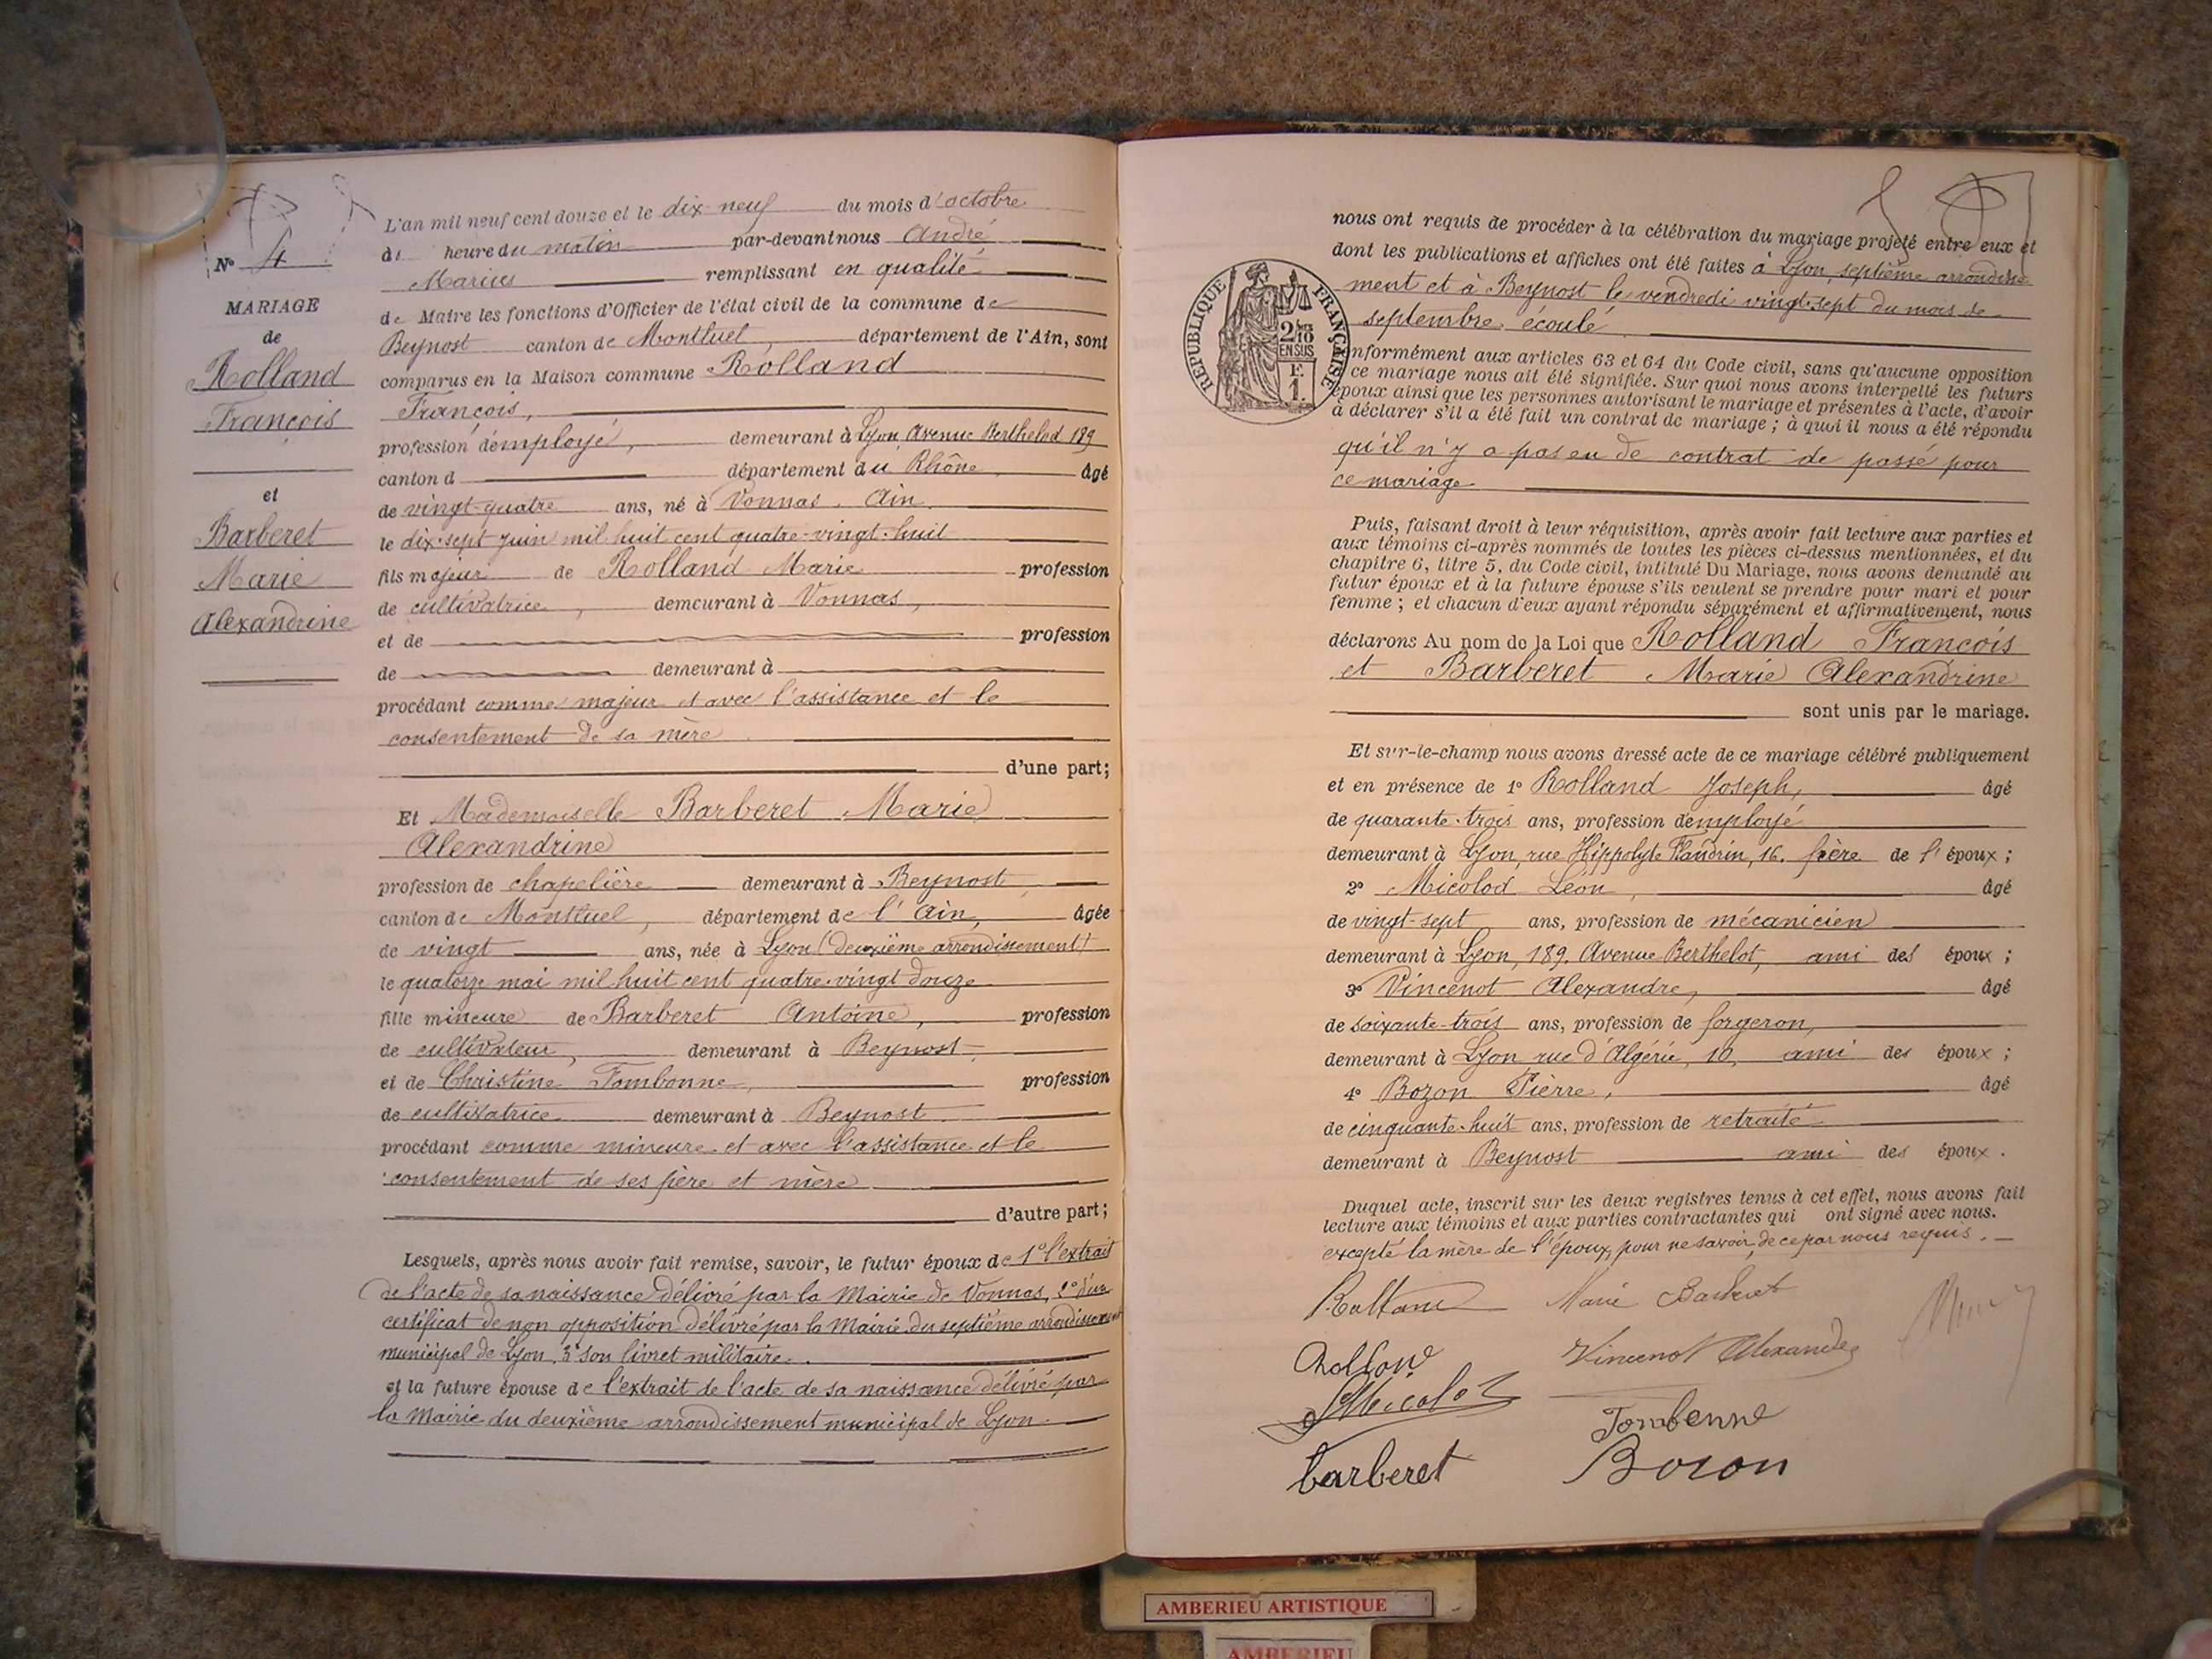 N° 4
MARIAGE
de
Rolland
François
et
Barberet
Marie
Alexandrine
L'an mil neuf cent douze et le dix neuf du mois d'octobre
d heure du matin par-devant nous André
Marius remplissant en qualité
de Maire les fonctions d'Officier de l'état civil de la commune de
Beynost canton de Montluel, département de l'Ain, sont
comparus en la Maison commune Rolland
François,
profession d'employé, demeurant à Lyon, Avenue Berthelod 189
canton d département du Rhône, âgé
de vingt-quatre ans, né à Vonnas. Ain.
le dix-sept juin mil huit cent quatre-vingt-huit
fils majeur de Rolland Marie profession
de cultivatrice, demeurant à Vonnas,
et de profession
de demeurant à
procédant comme majeur et avec l'assistance et le
consentement de sa mère.
d'une part;
Et Mademoiselle Barberet Marie
Alexandrine
profession de chapelière demeurant à Beynost,
canton de Montluel, département de l'Ain, âgée
de vingt ans, née à Lyon (deuxième arrondissement)
le quatorze mai mil huit cent quatre-vingt douze
fille mineure de Barberet Antoine, profession
de cultivateur, demeurant à Beynost,
et de Christine Tombonne, profession
de cultivatrice demeurant à Beynost
procédant comme mineure et avec l'assistance et le
consentement de ses père et mère
d'autre part;
Lesquels, après nous avoir fait remise, savoir, le futur époux de 1° l'extrait
de l'acte de sa naissance délivré par la Mairie de Vonnas, 2° d'un
certificat de non opposition délivré par la Mairie du septième arrondissement
municipal de Lyon, 3° son livret militaire.
et la future épouse de l'extrait de l'acte de sa naissance délivré par
la Mairie du deuxième arrondissement municipal de Lyon.
nous ont requis de procéder à la célébration du mariage projeté entre eux et
dont les publications et affiches ont été faites à Lyon, septième arrondisse-
ment et à Beynost le vendredi vingt-sept du mois de
septembre écoulé
RÉPUBLIQUE FRANÇAISE
2/10 EN SUS
F. 1.
conformément aux articles 63 et 64 du Code civil, sans qu'aucune opposition
ce mariage nous ait été signifiée. Sur quoi nous avons interpellé les futurs
époux ainsi que les personnes autorisant le mariage et présentes à l'acte, d'avoir
à déclarer s'il a été fait un contrat de mariage; à quoi il nous a été répondu
qu'il n'y a pas eu de contrat de passé pour
ce mariage
Puis, faisant droit à leur réquisition, après avoir fait lecture aux parties et
aux témoins ci-après nommés de toutes les pièces ci-dessus mentionnées, et du
chapitre 6, titre 5, du Code civil, intitulé Du Mariage, nous avons demandé au
futur époux et à la future épouse s'ils veulent se prendre pour mari et pour
femme; et chacun d'eux ayant répondu séparément et affirmativement, nous
déclarons Au nom de la Loi que Rolland François
et Barberet Marie Alexandrine
sont unis par le mariage.
Et sur-le-champ nous avons dressé acte de ce mariage célébré publiquement
et en présence de 1° Rolland Joseph, âgé
de quarante-trois ans, profession d'employé
demeurant à Lyon, rue Hippolyte Flandrin, 16. frère de l'époux;
2° Micolod Léon, âgé
de vingt-sept ans, profession de mécanicien
demeurant à Lyon, 189, Avenue Berthelot, ami des époux;
3° Vincenot Alexandre, âgé
de soixante-trois ans, profession de forgeron,
demeurant à Lyon rue d'Algérie, 10, ami des époux;
4° Bozon Pierre, âgé
de cinquante-huit ans, profession de retraité
demeurant à Beynost ami des époux.
Duquel acte, inscrit sur les deux registres tenus à cet effet, nous avons fait
lecture aux témoins et aux parties contractantes qui ont signé avec nous.
excepté la mère de l'époux, pour ne savoir, de ce par nous requis.
Rolland Marie Barberet
Rolland Vincenot Alexandre
Micolod
Tombenne
barberet Bozon
AMBERIEU ARTISTIQUE
AMBERIEU